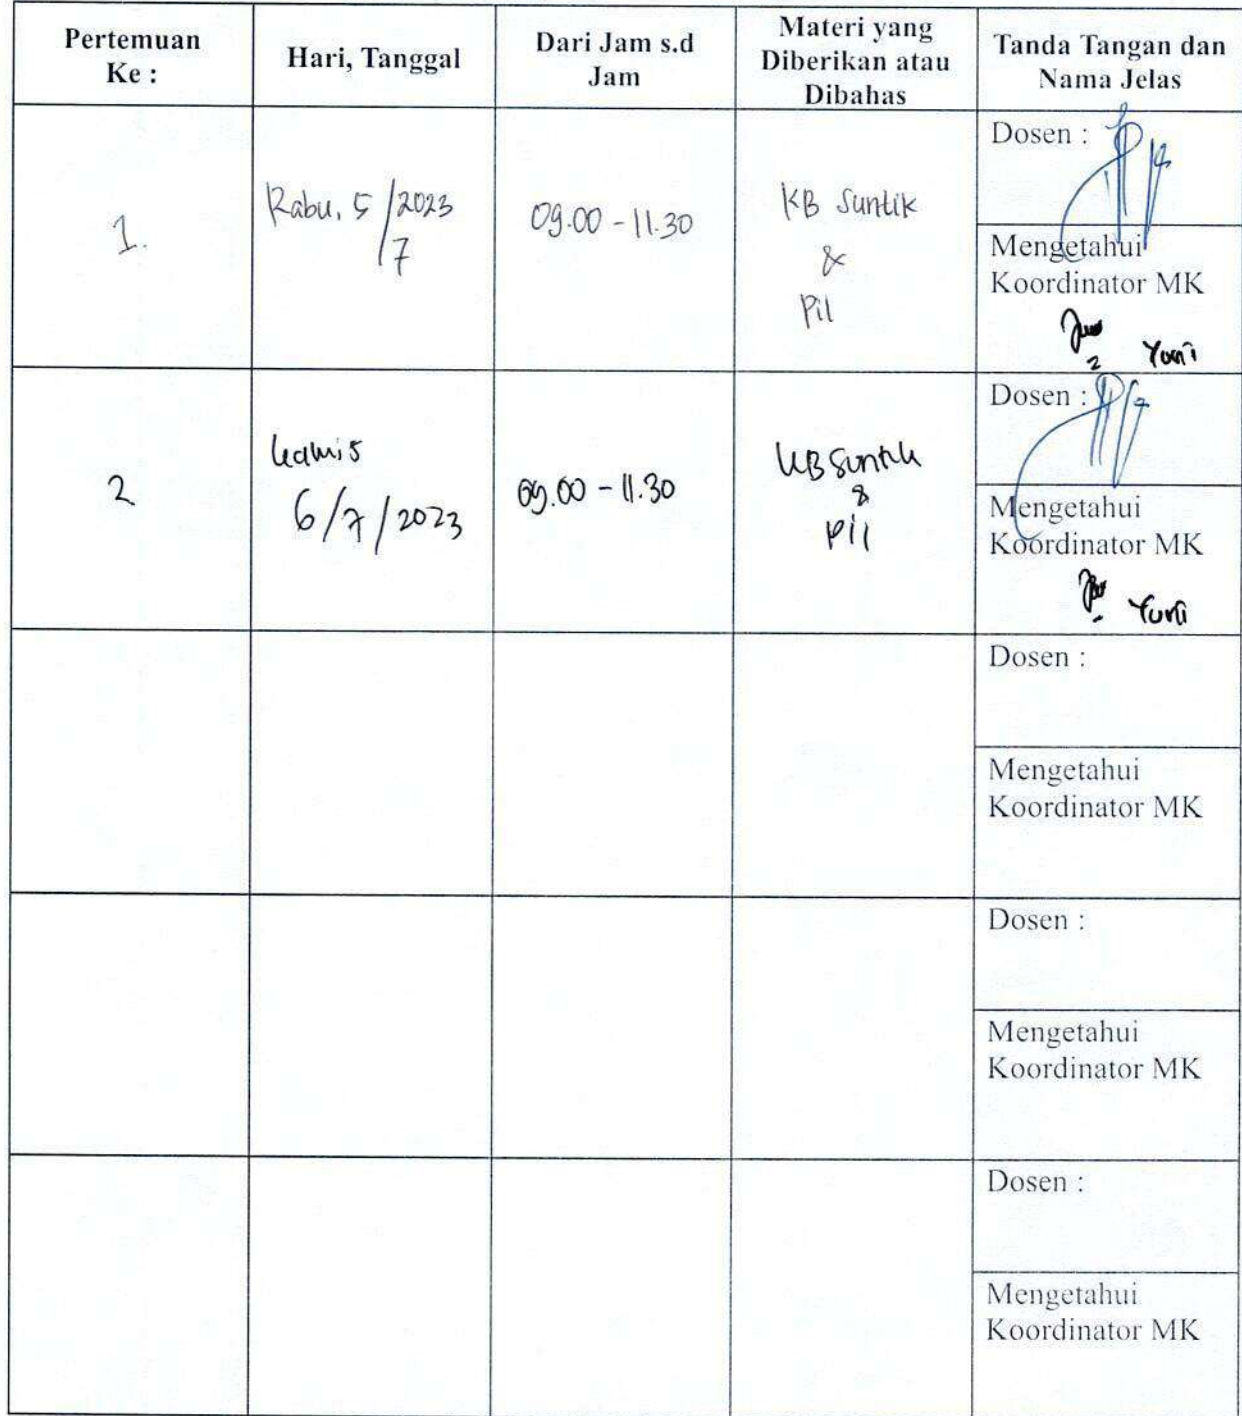 Pertemuan
Ke :
Hari, Tanggal
Dari Jam s.d
Jam
Materi yang
Diberikan atau
Dibahas
Tanda Tangan dan
Nama Jelas
1.
Rabu, 5/2023
7
09.00 - 11.30
KB Suntik
&
Pil
Dosen :
Mengetahui
Koordinator MK
Yuni
2
Kamis
6/7/2023
09.00 - 11.30
KB Suntik
&
Pil
Dosen :
Mengetahui
Koordinator MK
Yuni
Dosen :
Mengetahui
Koordinator MK
Dosen :
Mengetahui
Koordinator MK
Dosen :
Mengetahui
Koordinator MK